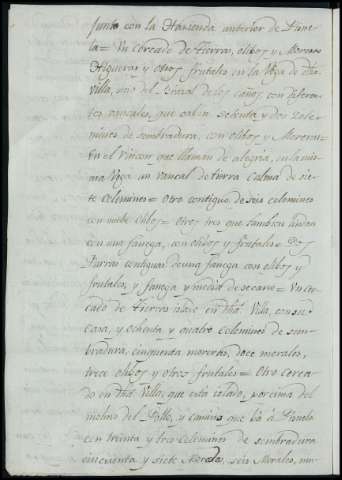 Junto con la Hacienda anterior de Pinie
la = Un Cercado de tierras, olibos y Moreras
Higueras y otros frutales en la Vega de dha
Villa, uno del Brazal de los Caños con diferen
tes vancales, que caben setenta y dos zele
mines de sembradura, con olibos y Moreras =
En el rincon que llaman de alegria, en la mis
ma Vega un vancal de tierra Calma de sie
te Celemines = Otro contiguo de seis celemines
con nuebe olibos = Otros tres que tambien lindan
con una fanega, con olibos y frutales = Dos
Parras contiguas de una fanega con olibos y
frutales, y fanega y media de secano = Un cer
cado de tierras islado en dha Villa, con su
Casa, y ochenta y quatro celemines de sem
bradura, cinquenta moreras, doce morales,
trece olibos y otros frutales = Otro cerca
do en dha Villa, que está islado, por cima del
molino del Pollo, y camino que bá á Piñuela
con treinta y tres celemines de sembradura
cincuenta y siete Moreras, seis Morales, nu